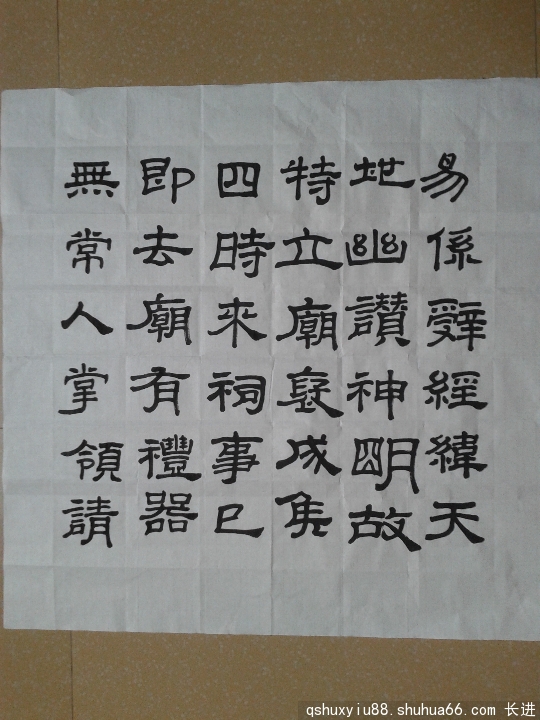 易係辭經緯天
地幽讚神明故
特立廟褒成侯
四時來祠事已
即去廟有禮器
無常人掌領請
qshuxyiu88.shuhua66.com 长进